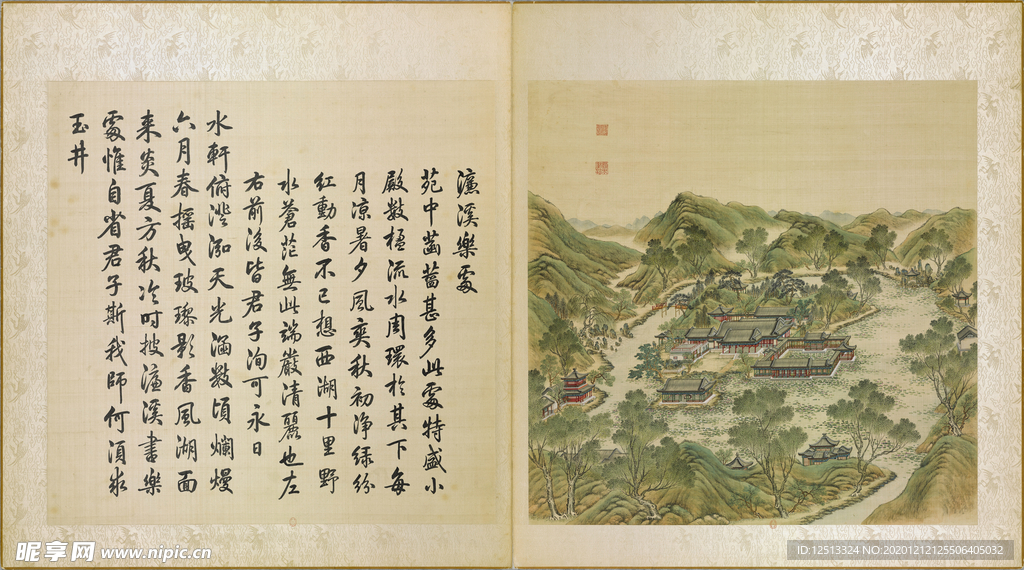 濂溪樂處
苑中菡萏甚多此處特盛小
殿數楹流水周環於其下每
月凉暑夕風爽秋初淨綠紛
紅動香不已想西湖十里野
水蒼茫無此端嚴清麗也左
右前後皆君子洵可永日
水軒俯澄泓天光涵數頃爛熳
六月春搖曳玻瓈影香風湖面
来炎夏方秋冷時披濂溪書樂
處惟自省君子斯我師何須求
玉井
昵享网 www.nipic.cn
ID:12513324 NO:20201212125506405032